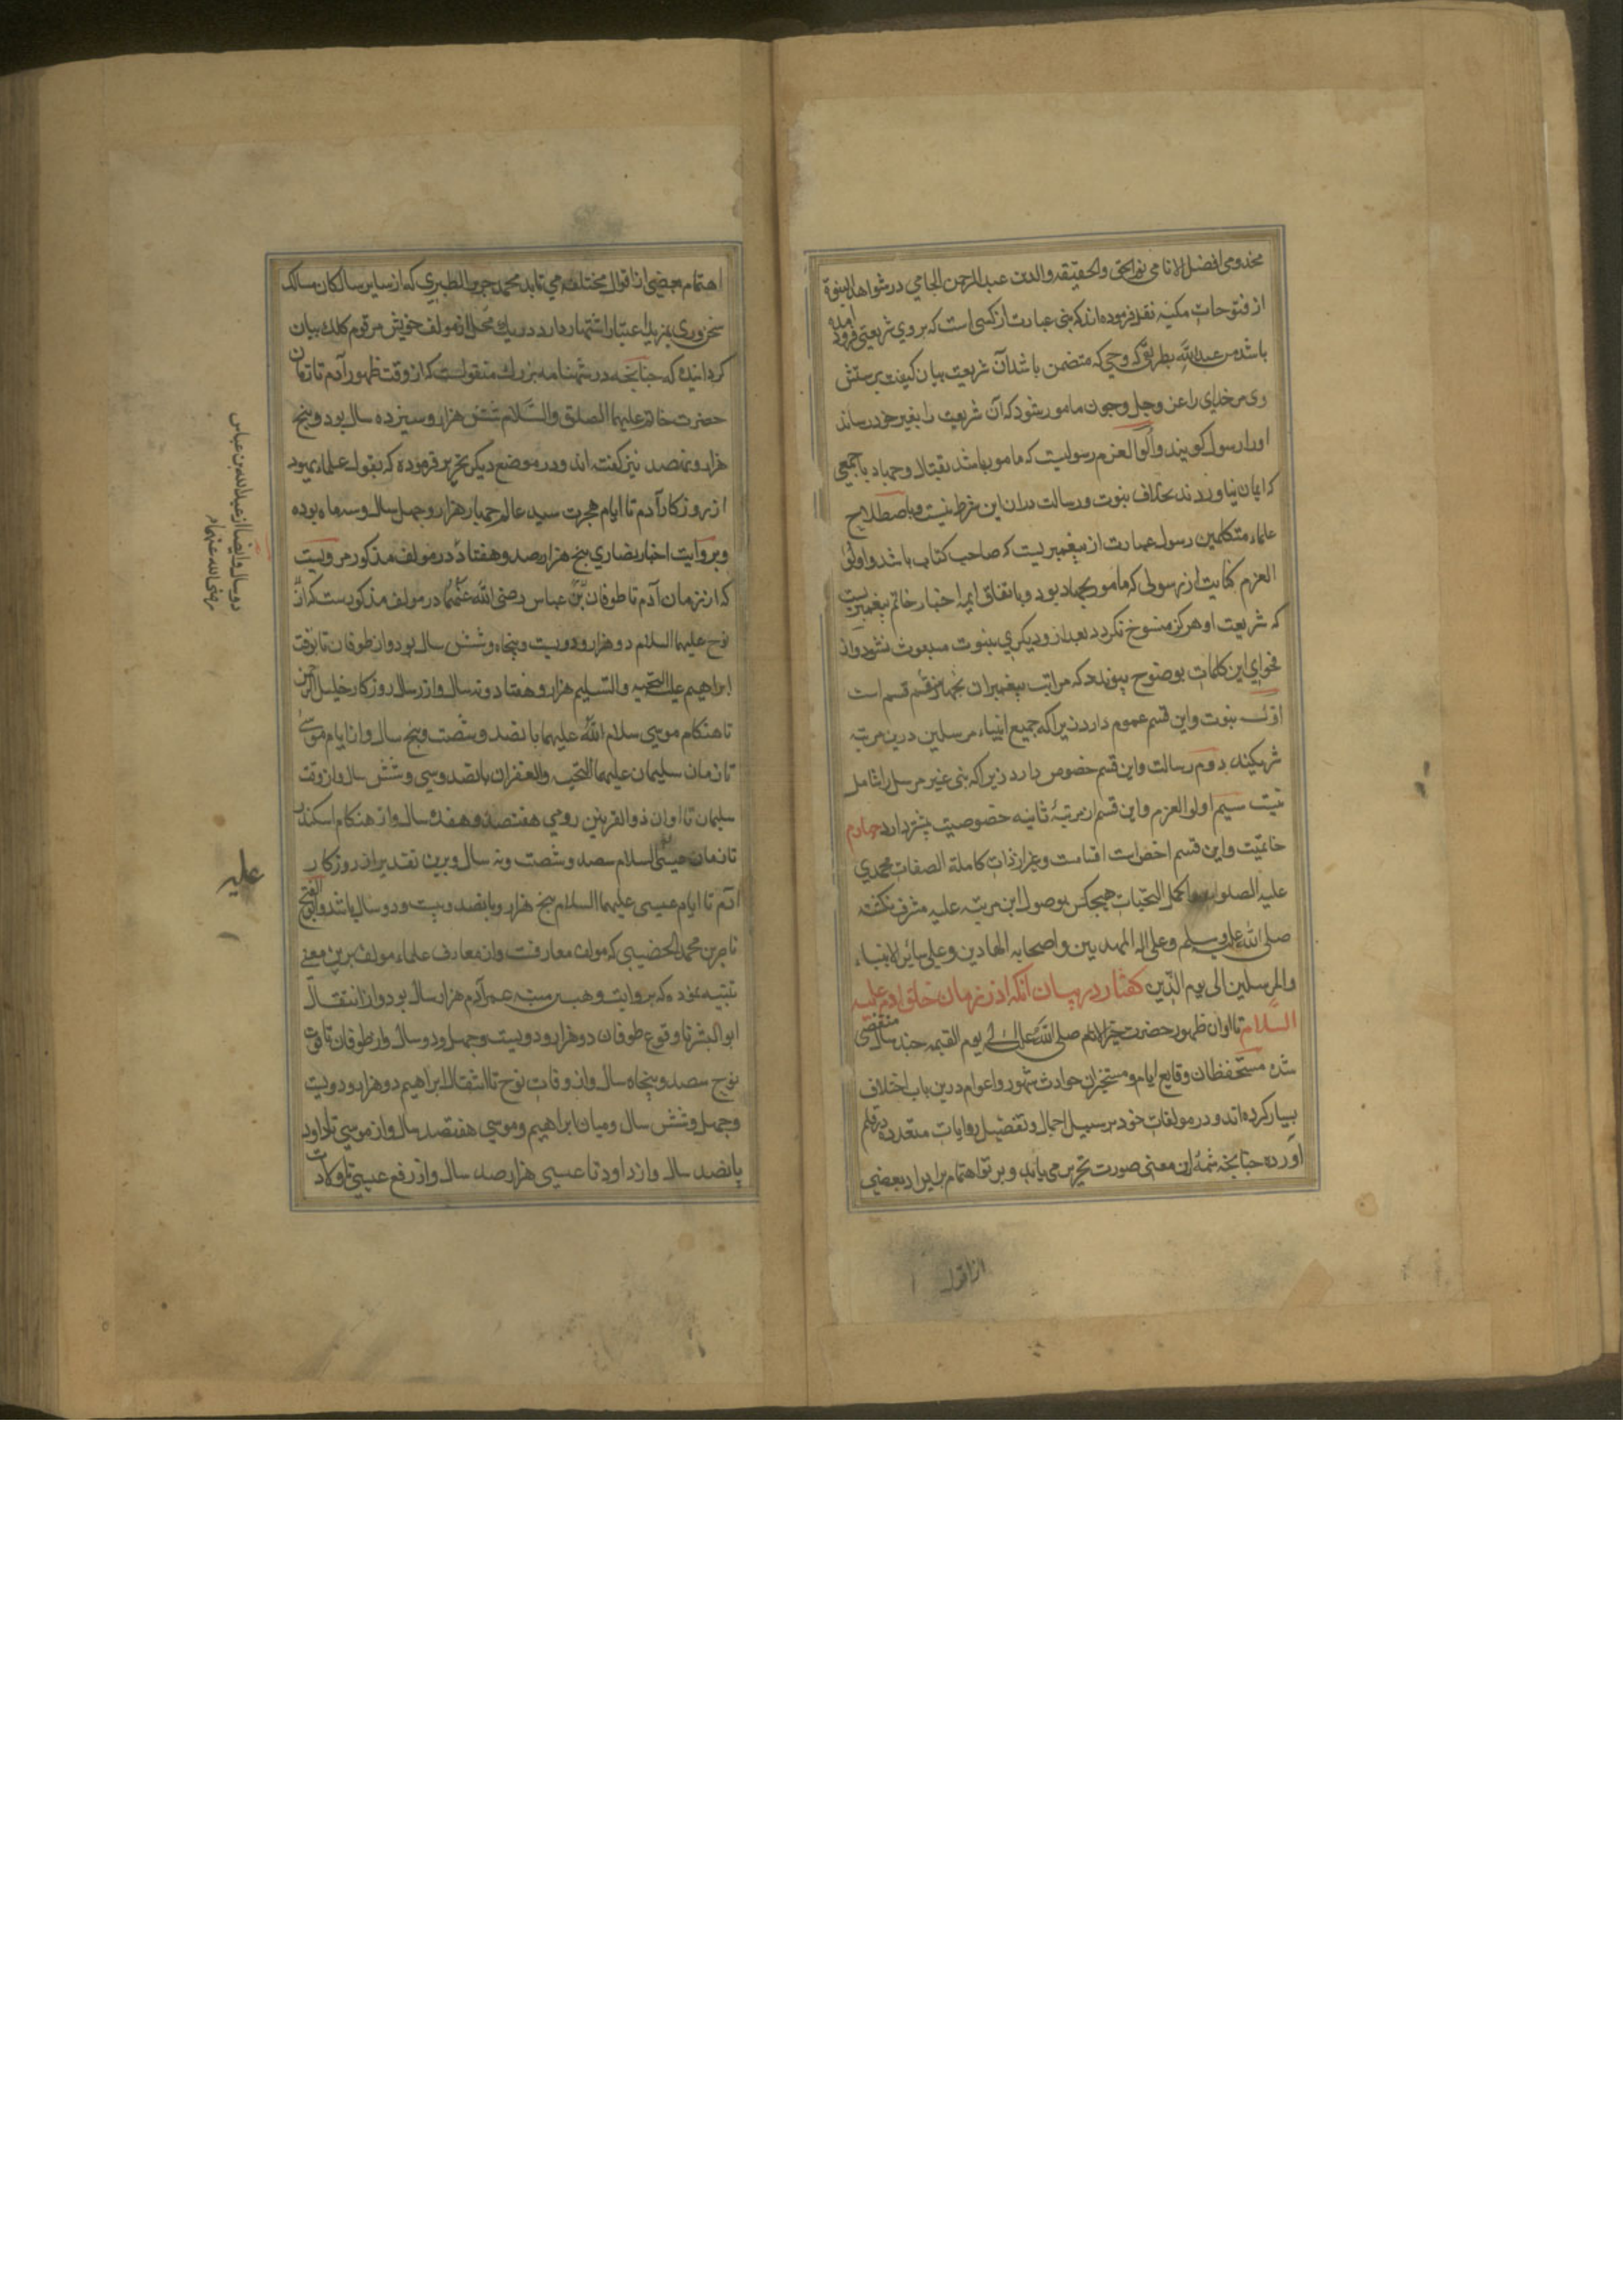 مخدومی افضل الانامی نور الحق والحقیقه والدین عبد الرحمن الجامی در شواهد النبوة
از فتوحات مکیه نقل فرموده اند که نبی عبارت از کسی است که بر وی شریعتی فرود آمده
باشد من عند الله بطریق وحی که متضمن باشد آن شریعت بیان کیفیت پرستش
وی مر خدای را عز وجل و چون مامور شود که آن شریعت را بغیر خود رساند
او را رسول کویند و اولو العزم رسولیست که مامور باشد بقتال و جهاد با جمعی
که ایمان نیاورند بخلاف نبوت و رسالت در ان این شرط نیست و باصطلاح
علماء متکلمین رسول عبارت از پیغمبریست که صاحب کتاب باشد و اولو
العزم کنایت از رسولی که مامور بجهاد بود و باتفاق ایمه اخبار خاتم پیغمبریست
که شریعت او هرکز منسوخ نکردد بعد از و دیکری بنبوت مبعوث نشود و از
فحوای این کلمات بوضوح پیوندد که مراتب پیغمبران بچهار قسم است
اول نبوت و این قسم عموم دارد زیرا که جمیع انبیاء مرسلین درین مرتبه
شریکند دوم رسالت و این قسم خصوص دارد زیرا که نبی غیر مرسل را شامل
نیست سیم اولو العزم و این قسم از مرتبهٔ ثانیه خصوصیت بیشتر دارد چهارم
خاتمیت و این قسم اخص است اقسامست و بغیر از ذات کاملة الصفات محمدی
علیه الصلوات و اکمل التحیات هیچکس بوصول این مرتبه علیه مشرف نکشته
صلی الله علیه وسلم وعلی اله المهدیین واصحابه الهادین وعلی سائر الانبیاء
والمرسلین الی یوم الدین کفتار در بیان انکه از زمان خلق ادم علیه
السلام تا اوان ظهور حضرت خیر الانام صلی الله علیه الی یوم القیمه چند سال منقضی
شده مستحفظان وقایع ایام و مستخبران حوادث شهور و اعوام درین باب اختلاف
بسیار کرده اند و در مولفات خود بر سبیل اجمال و تفضیل روایات متعدده در قلم
آورده چنانچه شمهٔ این معنی صورت تحریر می یابد و پرتو اهتمام بر ایراد بعضی
از اقوال
اهتمام بعضی از اقوال مختلفه می تابد محمد جریر الطبری که از سایر سالکان مسالک
سخنوری بمزید اعتبار اشتهار دارد در یک محل از مولف خویش مرقوم کلک بیان
کردانیده که چنانچه در شهنامه بزرک منقولست که از وقت ظهور آدم تا زمان
حضرت خاتم علیهما الصلوة والسلام شش هزار و سیزده سال بود و پنج
هزار و نهصد نیز کفته اند و در موضع دیکر تحریر فرموده که بقول علماء یهود
از روزکار آدم تا ایام هجرت سید عالم چهار هزار و چهل سال و سه ماه بوده
و بروایت اخبار نصاری پنج هزار صد و هفتاد دو در مولف مذکور مرویست
که از زمان آدم تا طوفان بن عباس رضی الله عنهما در مولف مذکورست که از
نوح علیهما السلام دو هزار و دویست و پنجاه و شش سال بود و از طوفان تا بوقت
ابراهیم علیه التحیه والتسلیم هزار و هفتاد و نه سال و از روزکار خلیل الرحمن
تا هنکام موسی سلام الله علیهما پانصد و شصت و پنج سال و از ایام موسی
تا زمان سلیمان علیهما التحیه والغفران پانصد و سی و شش سال و از وقت
سلیمان تا اوان ذو القرنین رومی هفتصد و هفده سال و از هنکام اسکندر
تا زمان عیسی السلام سصد و شصت و نه سال و برین تقدیر از روزکار
آدم تا ایام عیسی علیهما السلام پنج هزار و پانصد و بیست و دو سال باشد و ابو الفتح
ناصر بن محمد الحضیبی که مولف معارفست و از معارف علماء مولف برین معنی
تنبیه نموده که بروایت وهب بن منبه عمر آدم هزار سال بود و از انتقال
ابو البشر تا وقوع طوفان دو هزار و دویست و چهل و دو سال و از طوفان تا فوت
نوح سصد و پنجاه سال و از وفات نوح تا انتقال ابراهیم دو هزار و دویست
و چهل و شش سال و میان ابراهیم و موسی هفتصد سال و از موسی تا داود
پانصد سال و از داود تا عیسی هزار صد سال و از رفع عیسی تا ولادت
دو سال و ایضا از عبد الله بن عباس
رضی الله عنهما
علیه